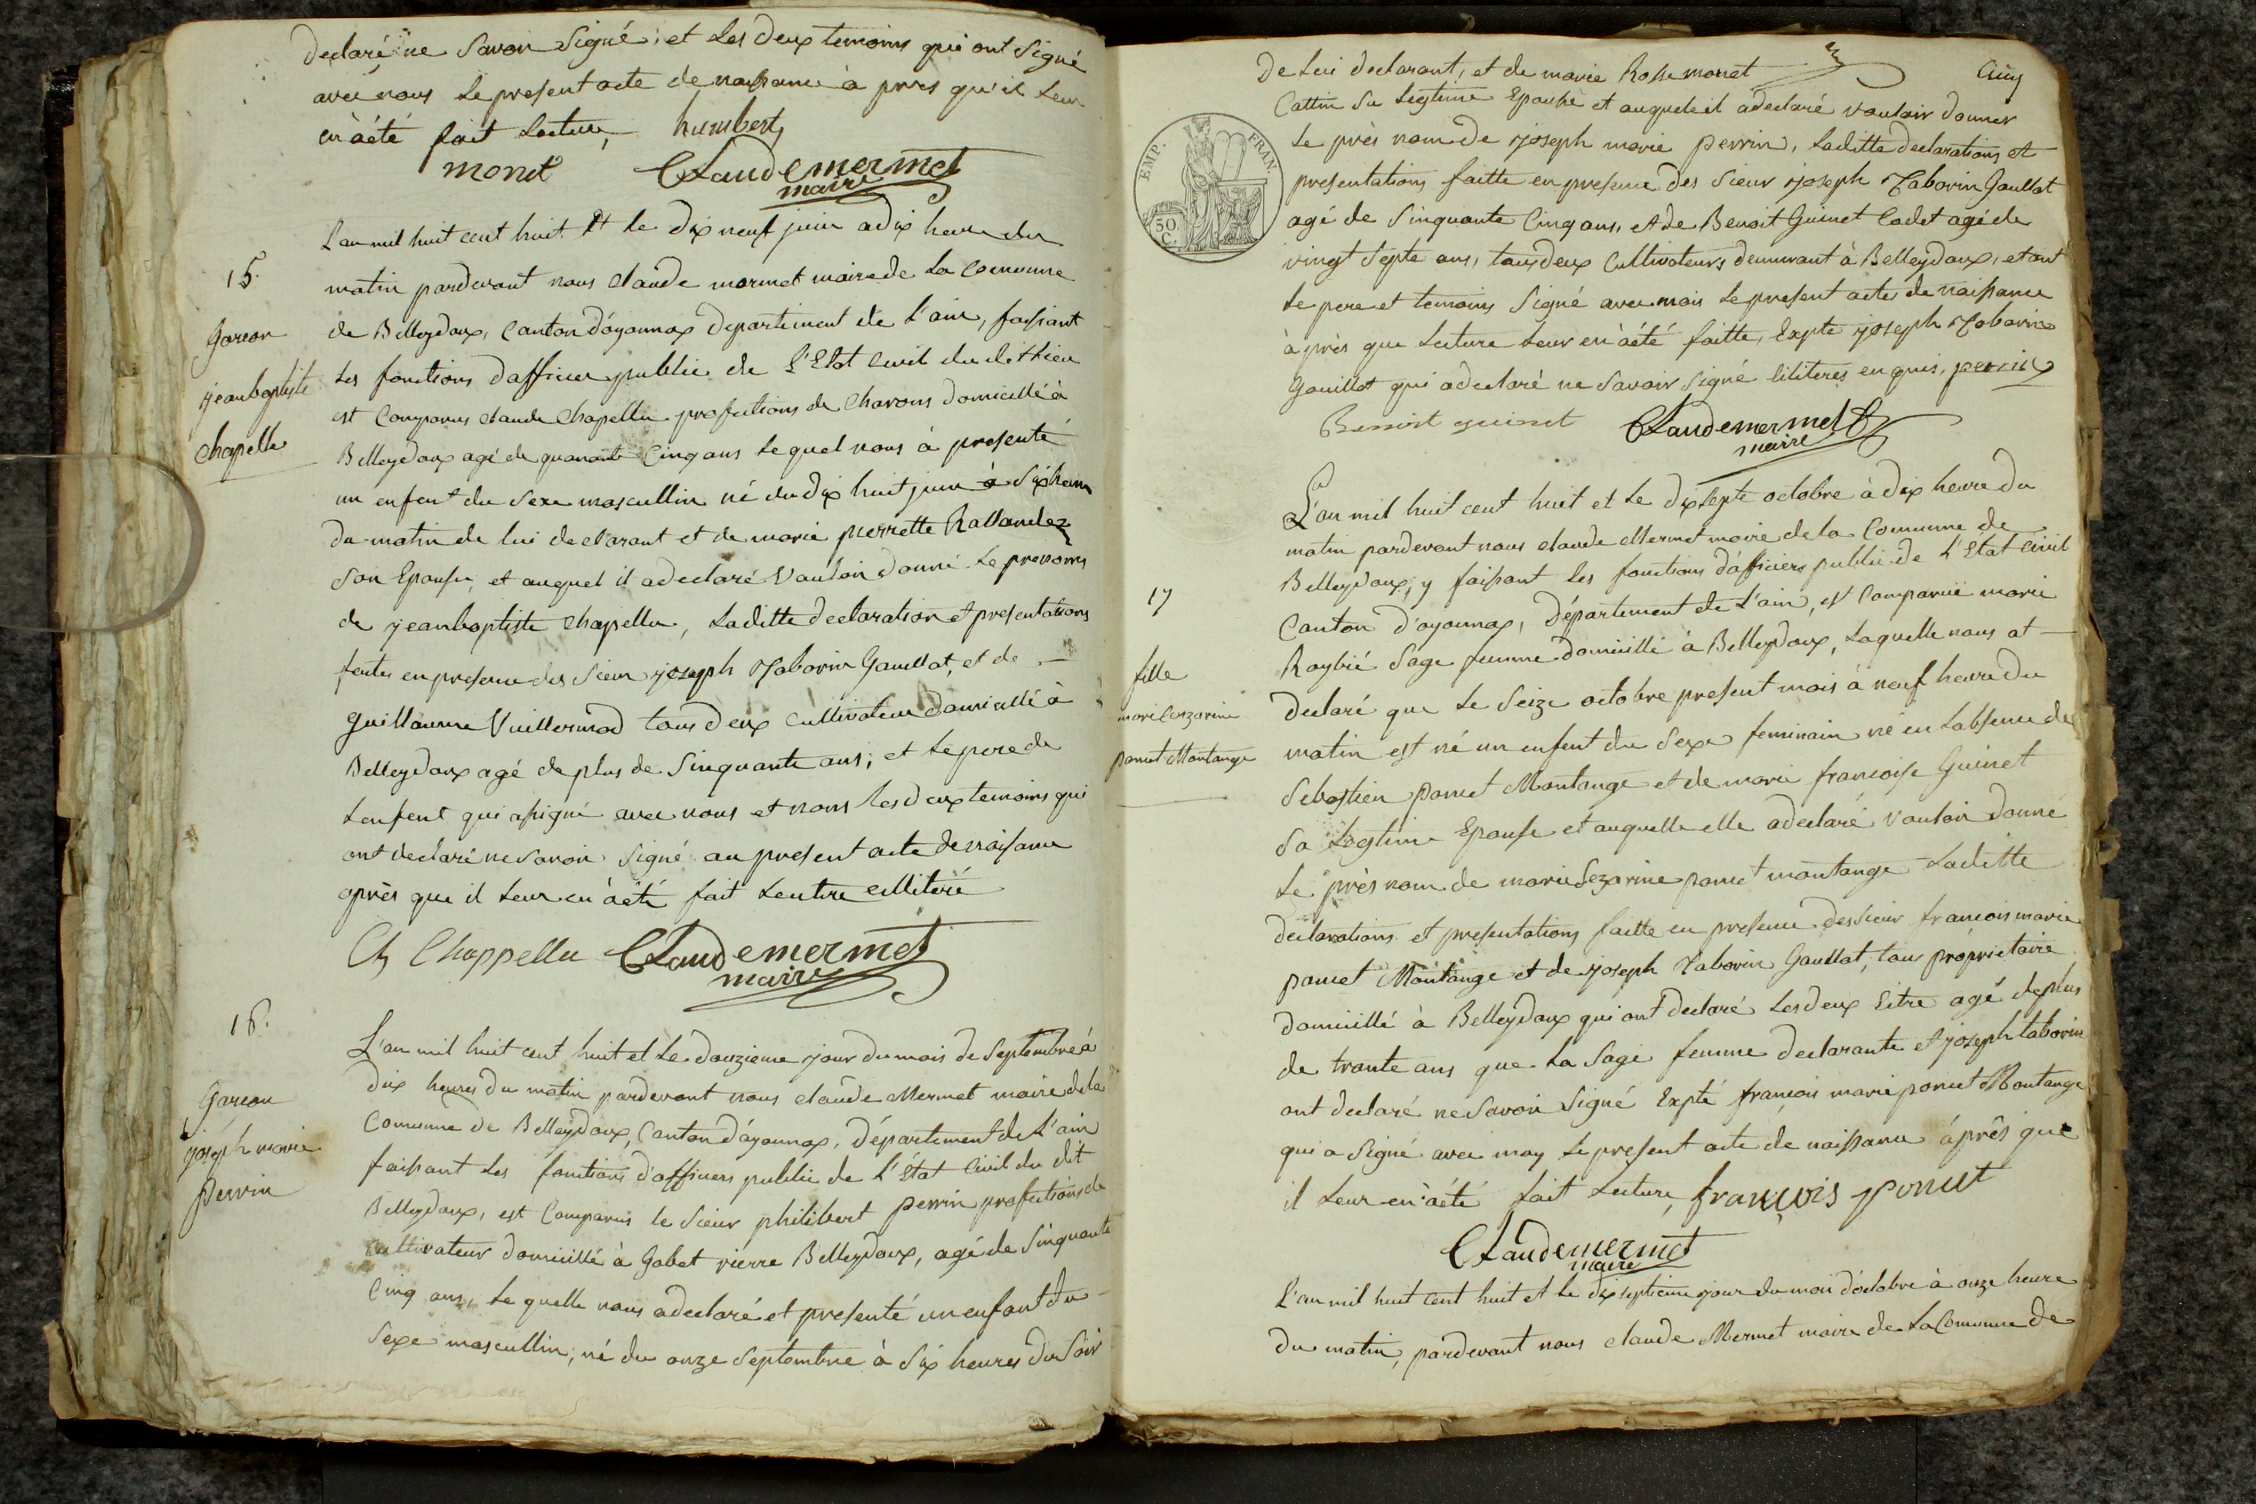 declaré ne Savoir Signé, et Les deux temoins qui ont Signé
avec nous Le present acte de naissance à près qu'il Leur
en àété fait Lecture, humbert
monet Claude mermet
maire
15.
Garcon
jeanbaptiste
chapelle
L'an mil huit cent huit et le dix neuf juin a dix heure du
matin pardevant nous claude mermet maire de La Comunne
de Belleydoux, Canton d'oyonnax departement de L'ain, faissant
Les fonctions d'afficier public de L'Etat Civil du dit Lieu
est Comparus claude Chapellu profections de Charons domicillé à
Belleydoux agé de quarante Cinq ans Lequel nous à presenté
un enfent du Sexe mascullin né du dix huit juin à Six heure
du matin de lui declarant et de marie pierrette
Son Epouse, et auquel il adeclaré Vouloir donné Le prenoms
de jeanbaptiste Chapellu, Laditte declaration et presentations
faites en presence des Sieur joseph Taborin Gaullat, et de
guillaume Vuillermod tous deux cultivateur domicillé à
Belleydoux agé de plus de Sinquante ans; et Le pere de
Lenfent qui asigné avec nous et nons les deux temoins qui
ont declaré ne Savoir Signé au present acte de naissance
après que il Leur en àété fait Lecture
Ch Chappellu Claude mermet
maire
16.
Garcon
joseph marie
perrin
L'an mil huit cent huit et Le douzieme jour du mois de Septembre à
dix heures du matin pardevant nous claude Mermet maire de la
Comunne de Belleydoux, Canton d'oyonnax, département de L'ain
faissant Les fonctions d'afficiers public de L'État Civil du dit
Belleydoux, est Comparus le Sieur philibert perrin profections de
Cultivateur domicillé à Gobet rierre Belleydoux, agé de Sinquante
Cinq ans, Le quelle nous adeclaré et presenté un enfant du
Sexe mascullin, né du onze Septembre à Six heures du Soir
de Lui declarant, et de marie Rosse monet
Cattin Sa Legtime Epouse et auquele il adeclaré vouloir donner
Le près nom de joseph marie perrin, Laditte declarations et
presentations faitte en presence des Sieur joseph Taborin Gaullat
agé de Sinquante Cinq ans, et de Benoit Guinet Cadet agé de
vingt Septe ans, tous deux Cultivateurs demurant à Belleydoux, et ont
Le pere et temoins Signé avec mois Le present actes de naissance
à près que Lecture Leur en àété faitte, Expte joseph Taborin
Gouillot qui adeclaré ne Savoir Signé enquis, perrin
Benoit guinet Claude mermet
maire
EMP. FRAN.
50 C.
17
fille
marie Cezarine
poncet Montange
L'an mil huit cent huit et Le dix septe octobre à dix heure du
matin pardevant nous claude Mermet maire de la Comunne de
Belleydoux, y faissant les fonctions d'afficiers public de L'Etat Civil
Canton d'oyonnax, Département de L'ain, est Comparuë marie
Raybié Sage femme domicillé à Belleydoux, Laquelle nous at
declaré que Le Seize octobre present mois à neuf heure du
matin est né un enfent du Sexe feminain né en Labsence de
Sebastien poncet Montange et de marie francoise Guinet
Sa Legtime Epouse et auquelle elle adeclaré vouloir donné
Le près nom de marie Sezarine poncet montange Laditte
declarations et presentations faitte en presence des Sieur francois marie
poncet Montange et de joseph Taborin Gaullat, tous proprietaire
domicillé à Belleydoux qui ont declaré Les deux Etre agé de plus
de trante ans que La Sage femme declarante et joseph taborin
ont declaré ne Savoir Signé Expté françois marie poncet Montange
qui a Signé avec moy Le present acte de naissance àprès que
il Leur en àété fait Lecture, françois poncet
Claude mermet
maire
L'an mil huit cent huit et le dix septieme jour du mois d'octobre à onze heure
du matin, pardevant nous claude Mermet maire de La Comunne de